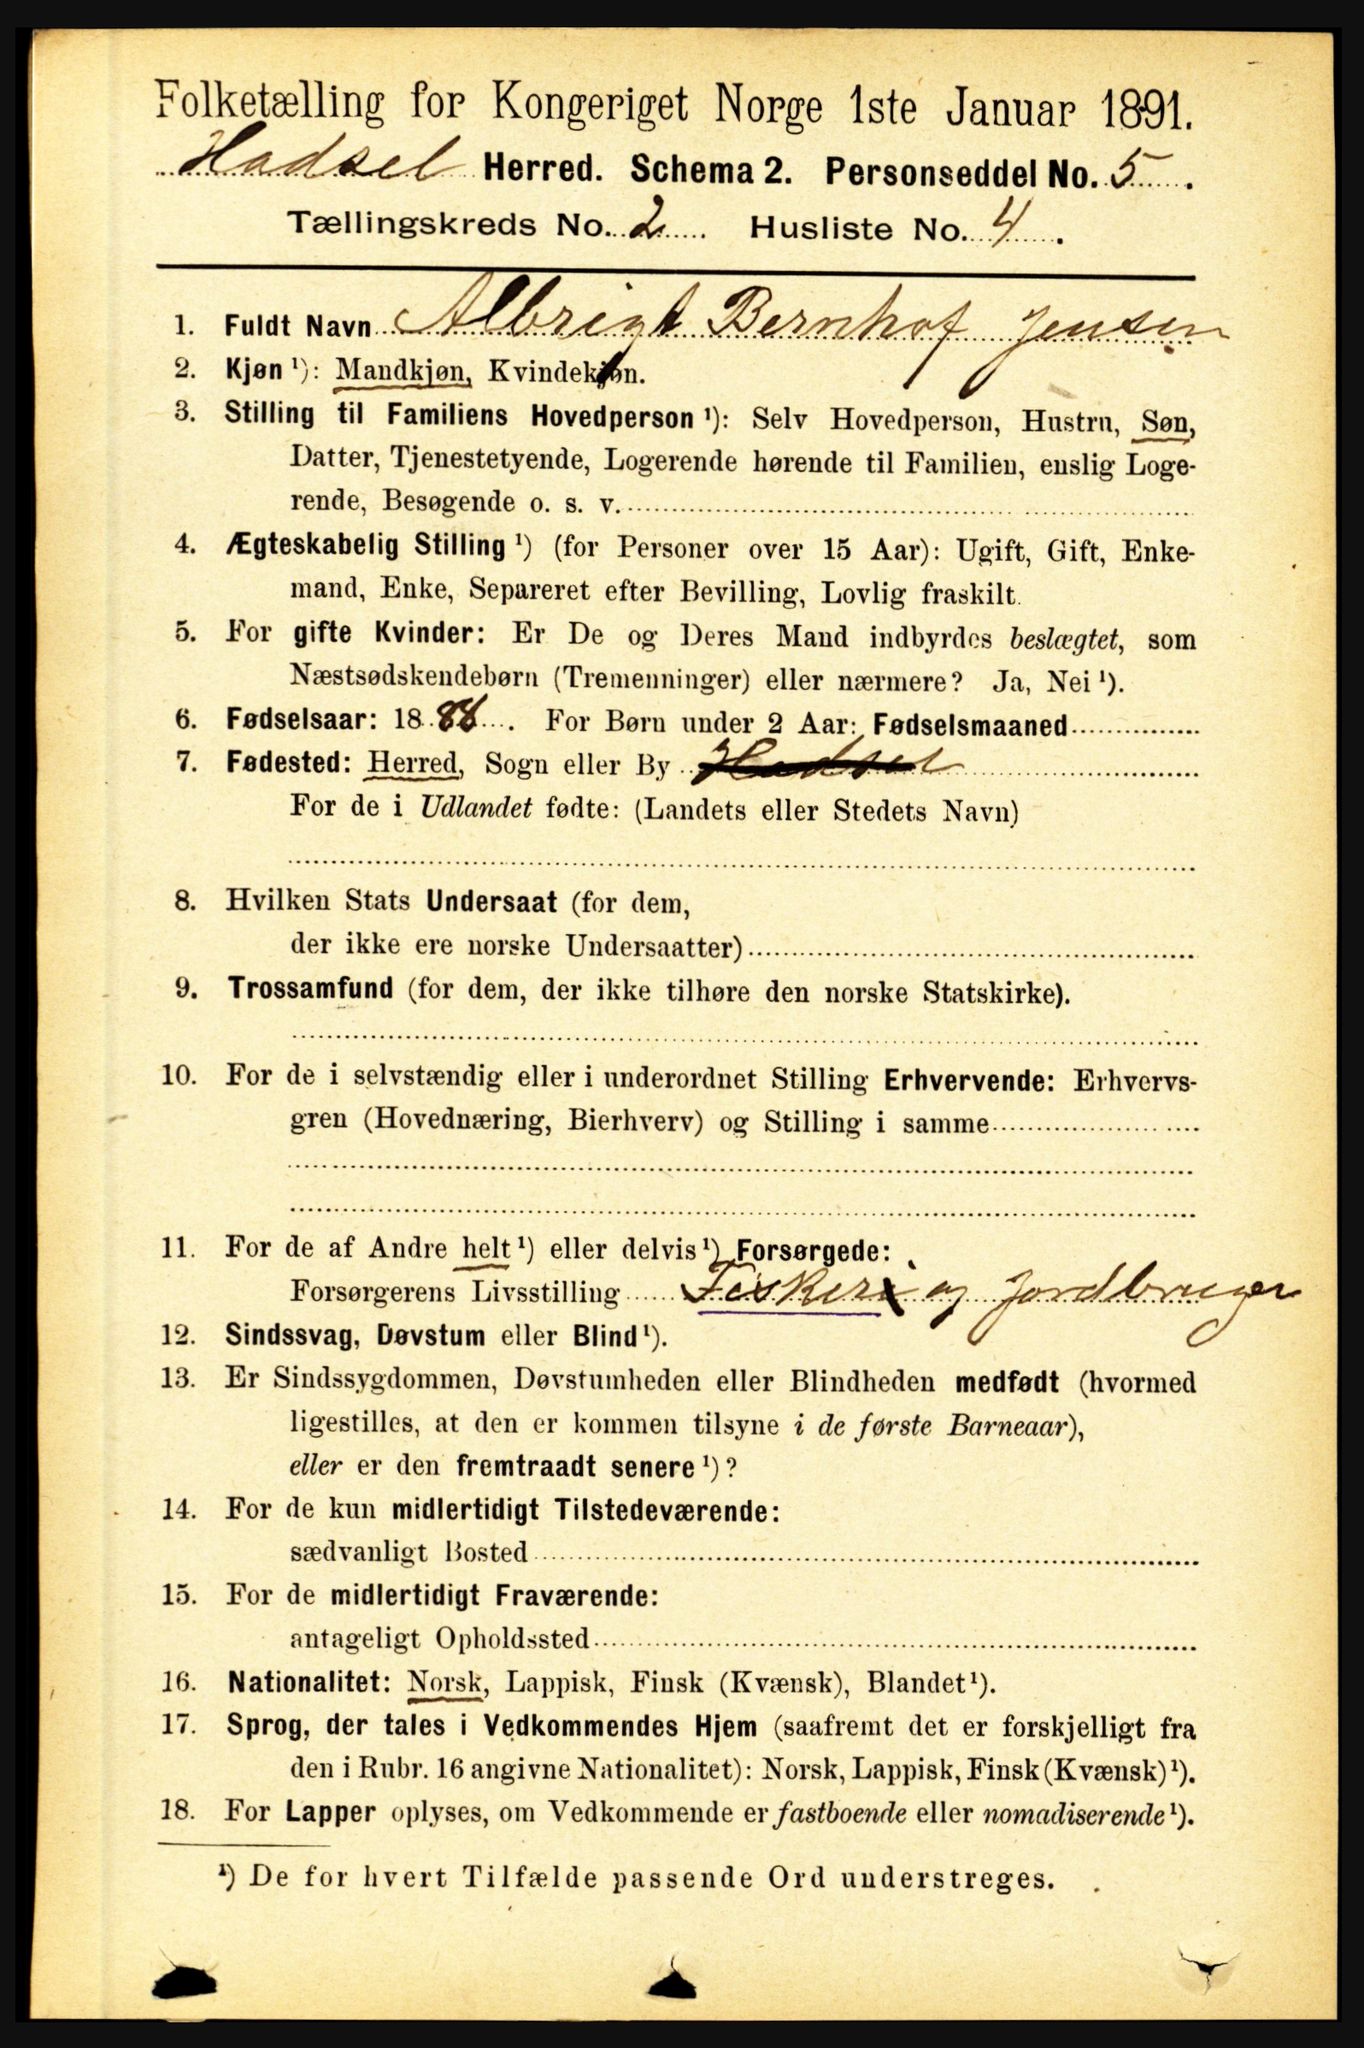 Folketælling for Kongeriget Norge 1ste Januar 1891.
Hadsel Herred. Schema 2. Personseddel No. 5.
Tællingskreds No. 2 Husliste No. 4.
1. Fuldt Navn Albrigt Bernhof Jensen
2. Kjøn ¹): Mandkjøn, Kvindekjøn.
3. Stilling til Familiens Hovedperson ¹): Selv Hovedperson, Hustru, Søn,
Datter, Tjenestetyende, Logerende hørende til Familien, enslig Loge-
rende, Besøgende o. s. v.
4. Ægteskabelig Stilling ¹) (for Personer over 15 Aar): Ugift, Gift, Enke-
mand, Enke, Separeret efter Bevilling, Lovlig fraskilt.
5. For gifte Kvinder: Er De og Deres Mand indbyrdes beslægtet, som
Næstsødskendebørn (Tremenninger) eller nærmere? Ja, Nei ¹).
6. Fødselsaar: 1888. For Børn under 2 Aar: Fødselsmaaned
7. Fødested: Herred, Sogn eller By Hadsel
For de i Udlandet fødte: (Landets eller Stedets Navn)
8. Hvilken Stats Undersaat (for dem,
der ikke ere norske Undersaatter)
9. Trossamfund (for dem, der ikke tilhøre den norske Statskirke).
10. For de i selvstændig eller i underordnet Stilling Erhvervende: Erhvervs-
gren (Hovednæring, Bierhverv) og Stilling i samme
11. For de af Andre helt ¹) eller delvis ¹) Forsørgede:
Forsørgerens Livsstilling Fisker og Jordbruger
12. Sindssvag, Døvstum eller Blind ¹).
13. Er Sindssygdommen, Døvstumheden eller Blindheden medfødt (hvormed
ligestilles, at den er kommen tilsyne i de første Barneaar),
eller er den fremtraadt senere ¹)?
14. For de kun midlertidigt Tilstedeværende:
sædvanligt Bosted
15. For de midlertidigt Fraværende:
antageligt Opholdssted
16. Nationalitet: Norsk, Lappisk, Finsk (Kvænsk), Blandet ¹).
17. Sprog, der tales i Vedkommendes Hjem (saafremt det er forskjelligt fra
den i Rubr. 16 angivne Nationalitet): Norsk, Lappisk, Finsk (Kvænsk) ¹).
18. For Lapper oplyses, om Vedkommende er fastboende eller nomadiserende ¹).
¹) De for hvert Tilfælde passende Ord understreges.